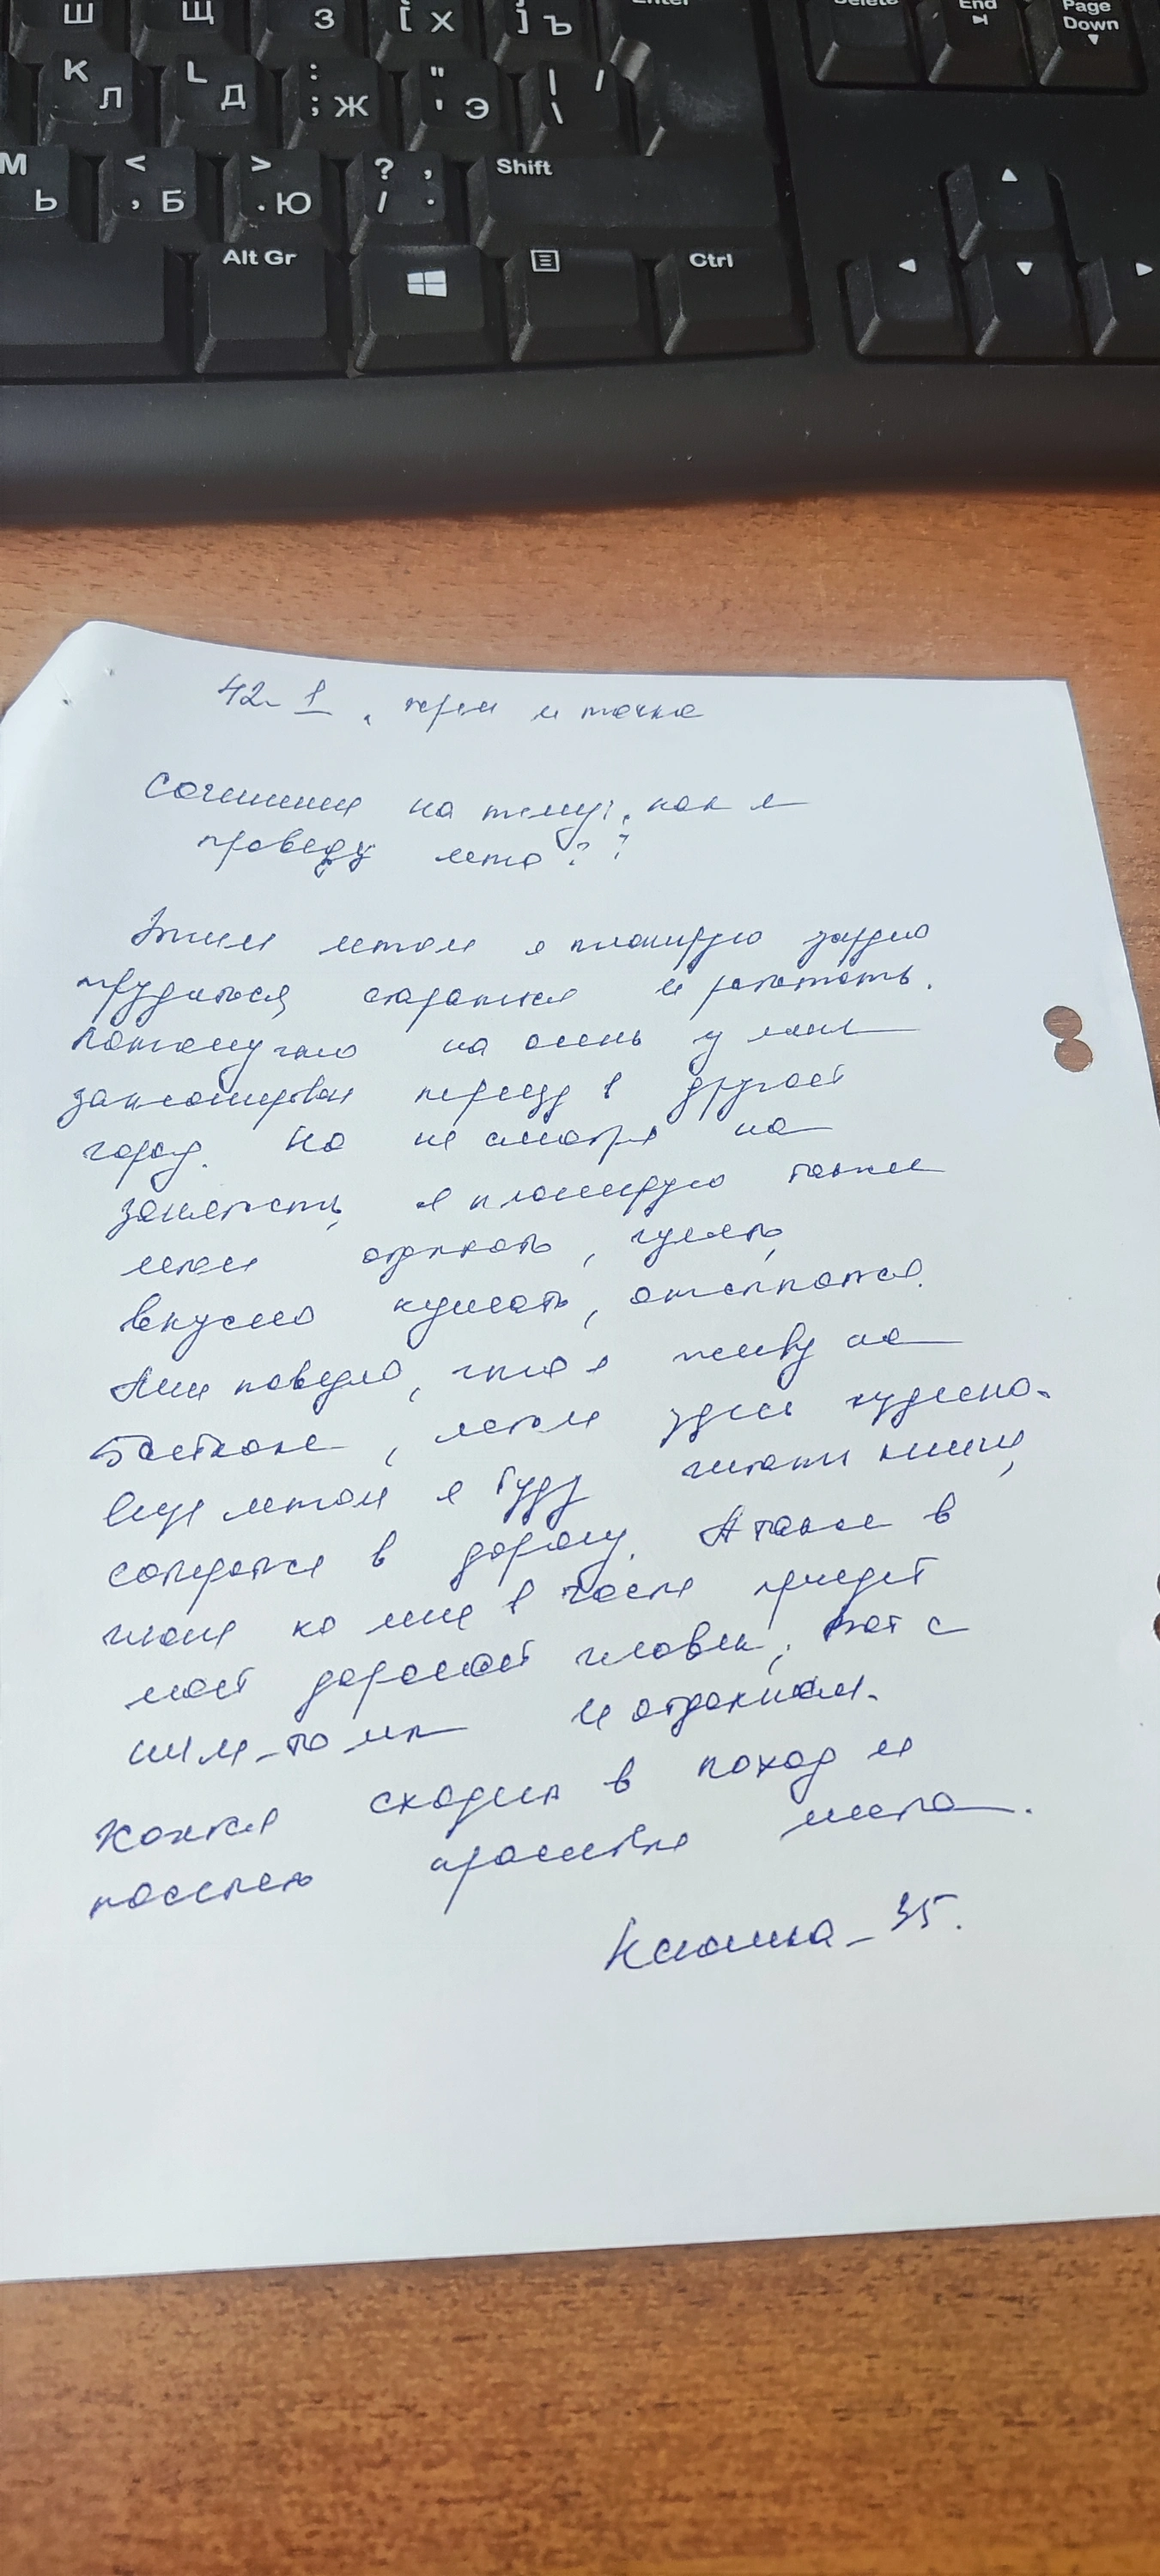 Ш Щ З [ Х ] Ъ Enter Delete End Page Down
К Л L Д : ; Ж " ' Э | / \
М Ь < , Б > . Ю ? / , . Shift
Alt Gr Ctrl
42- 1, три и точка
Сочинение на тему: как я
проведу лето??
Этим летом я планирую
трудиться, стараться и работать.
Потому что на осень у меня
запланирован переезд в другой
город. Но не смотря на
занятость, я планирую также
летом отдыхать, гулять,
вкусно кушать, отсыпаться.
Мне повезло, что я живу на
Байкале, летом здесь чудесно.
Еще летом я буду читать книги,
собираться в дорогу. А также в
июле ко мне в гости приедет
мой дорогой человек. Вот с
ним-то мы и отдохнем.
сходим в поход и
посетить красивые места.
Ксюшка-35.